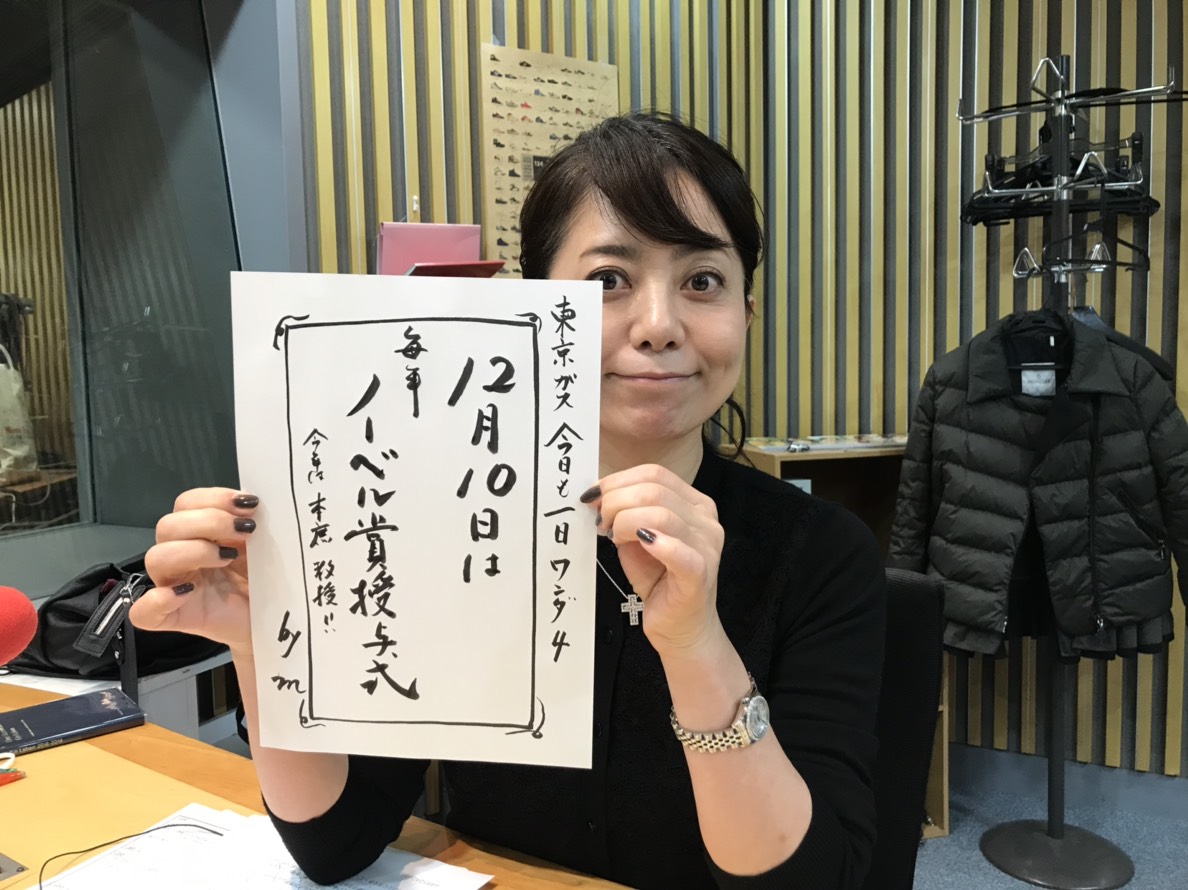 東京ガス 今日も一日 ワンダ4
12月10日は
毎年
ノーベル賞授与式
今年は 本庶 教授!!
by m